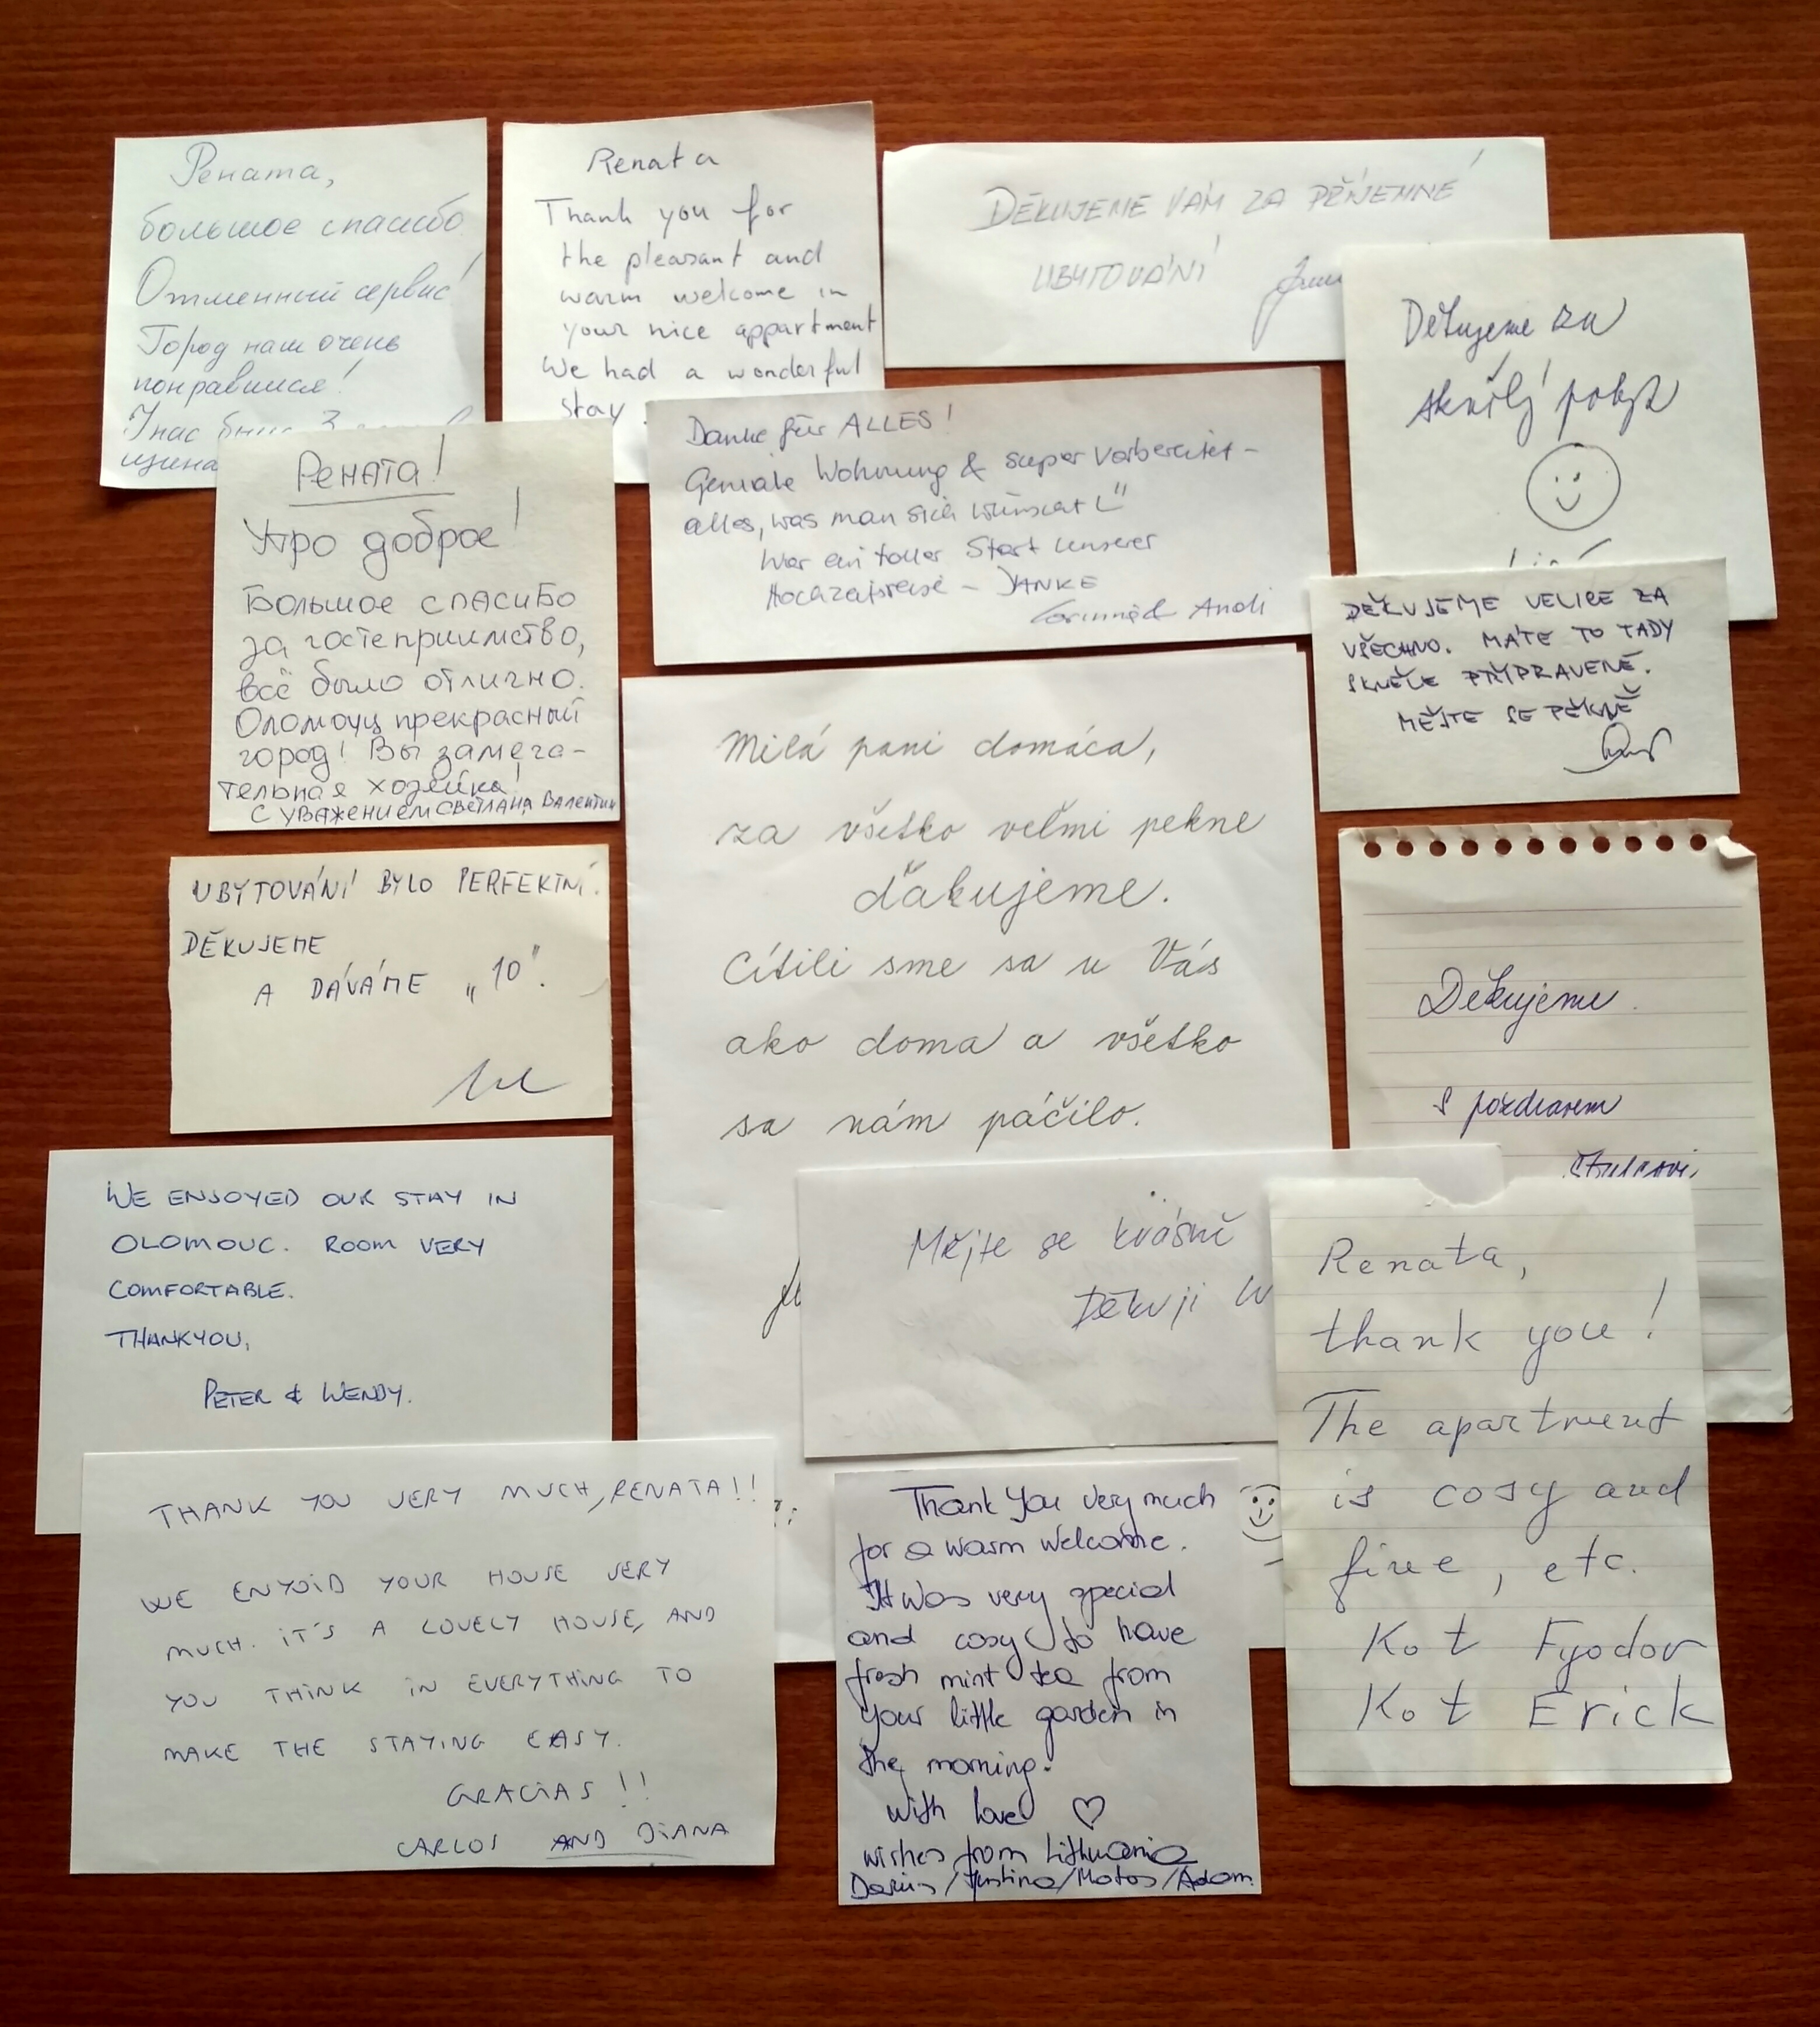 Рената,
большое спасибо
Отменный сервис!
Город нам очень
понравился!
У нас
Renata
Thank you for
the pleasant and
warm welcome in
your nice appartment
We had a wonderful
stay
DĚKUJEME VÁM ZA PŘÍJEMNÉ
UBYTOVÁNÍ
Děkujeme za
skvělý pobyt
Danke für ALLES!
Geniale Wohnung & super vorbereitet –
alles, was man sich wünscht
War ein toller Start unserer
Hochzeitsreise – DANKE
Corinna & Andi
РЕНАТА!
Утро доброе!
Большое спасибо
за гостеприимство,
всё было отлично.
Оломоуц прекрасный
город! Вы замеча-
тельная хозяйка!
С уважением Светлана, Валентин
DĚKUJEME VELICE ZA
VŠECHNO. MÁTE TO TADY
SKVĚLE PŘIPRAVENÉ.
MĚJTE SE PĚKNĚ
Milá pani domáca,
za všetko veľmi pekne
ďakujeme.
Cítili sme sa u Vás
ako doma a všetko
sa nám páčilo.
UBYTOVÁNÍ BYLO PERFEKTNÍ.
DĚKUJEME
A DÁVÁME „10".
Děkujeme.
S pozdravem
WE ENJOYED OUR STAY IN
OLOMOUC. ROOM VERY
COMFORTABLE.
THANKYOU,
PETER & WENDY.
Mějte se krásně
Děkuji
Renata,
thank you!
The apartment
is cosy and
fine, etc.
Kot Fyodor
Kot Erick
THANK YOU VERY MUCH, RENATA!!
WE ENYOID YOUR HOUSE VERY
MUCH. IT'S A LOVELY HOUSE, AND
YOU THINK IN EVERYTHING TO
MAKE THE STAYING EASY.
GRACIAS!!
CARLOS AND DIANA
Thank You very much
for a warm welcome.
It was very special
and cosy to have
fresh mint tea from
your little garden in
the morning.
With love ♡
wishes from Lithuania
Darius/Justina/Matas/Adam